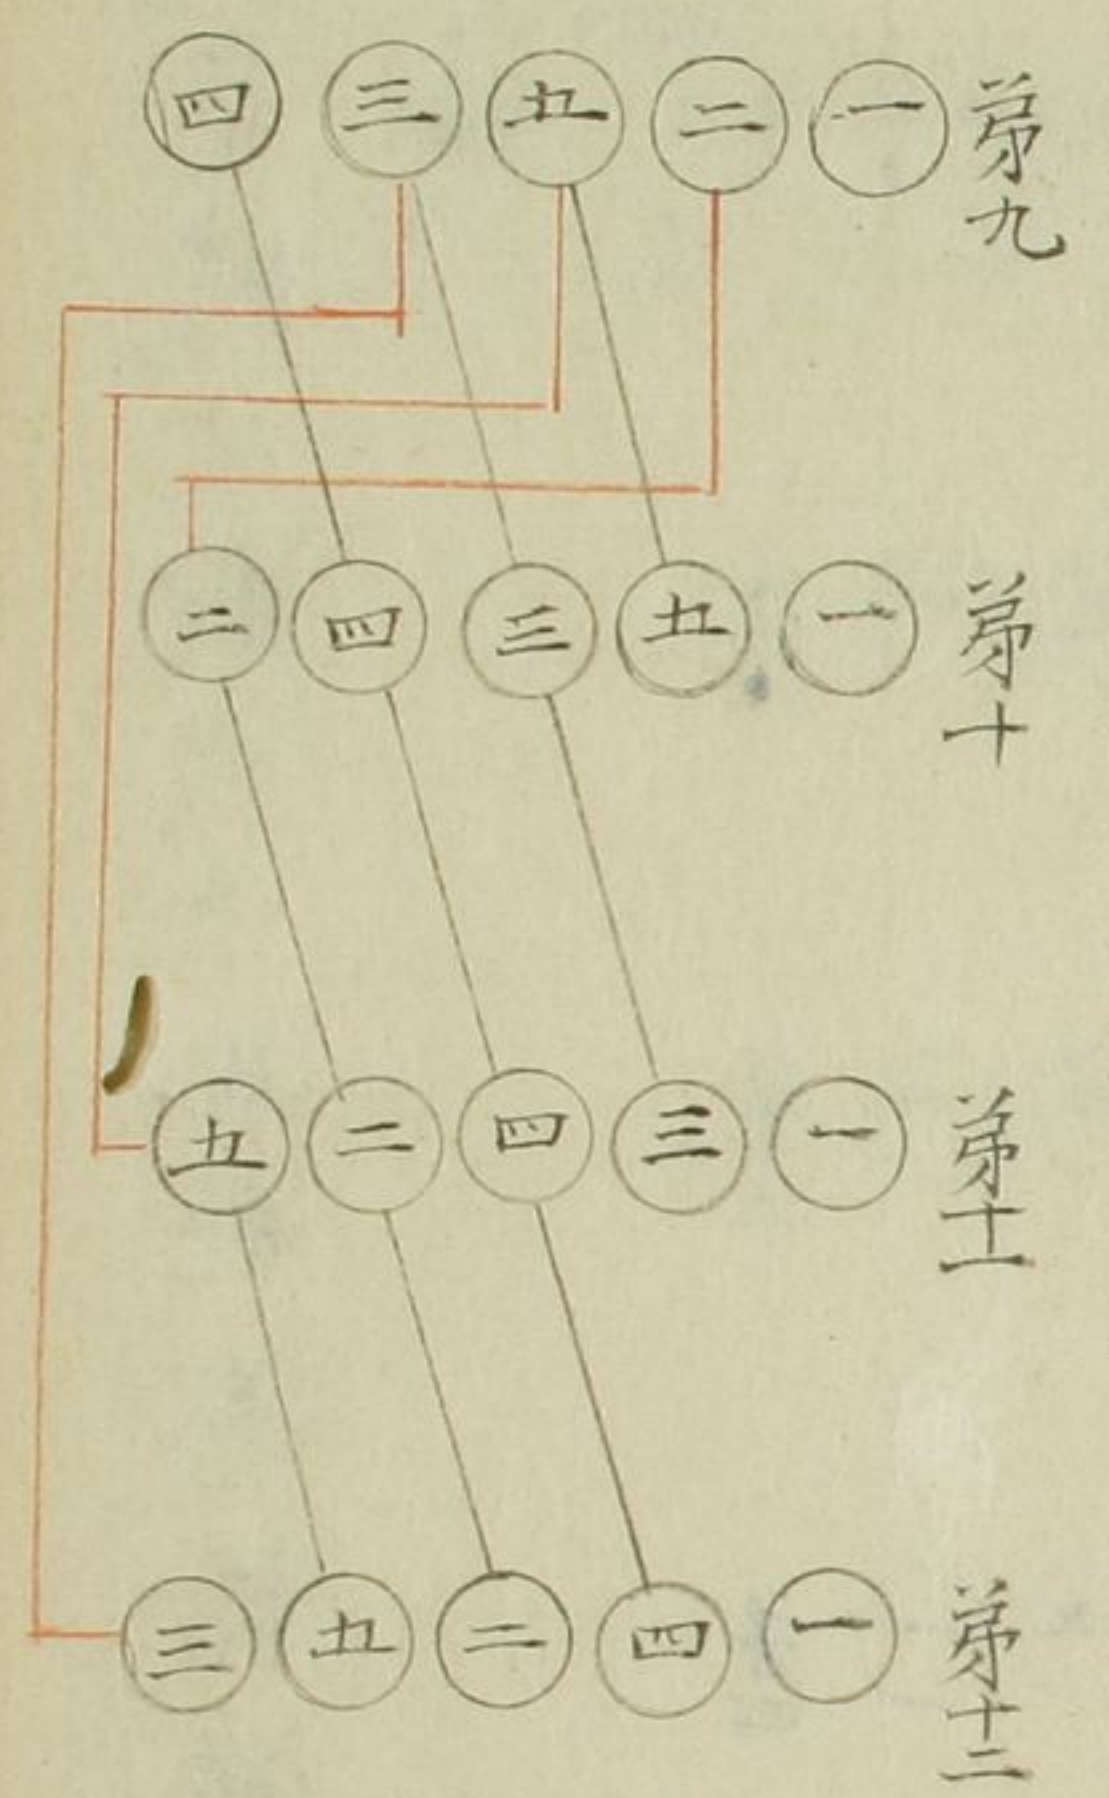 第九 一 二 五 三 四
第十 一 五 三 四 二
第十一 一 三 四 二 五
第十二 一 四 二 五 三